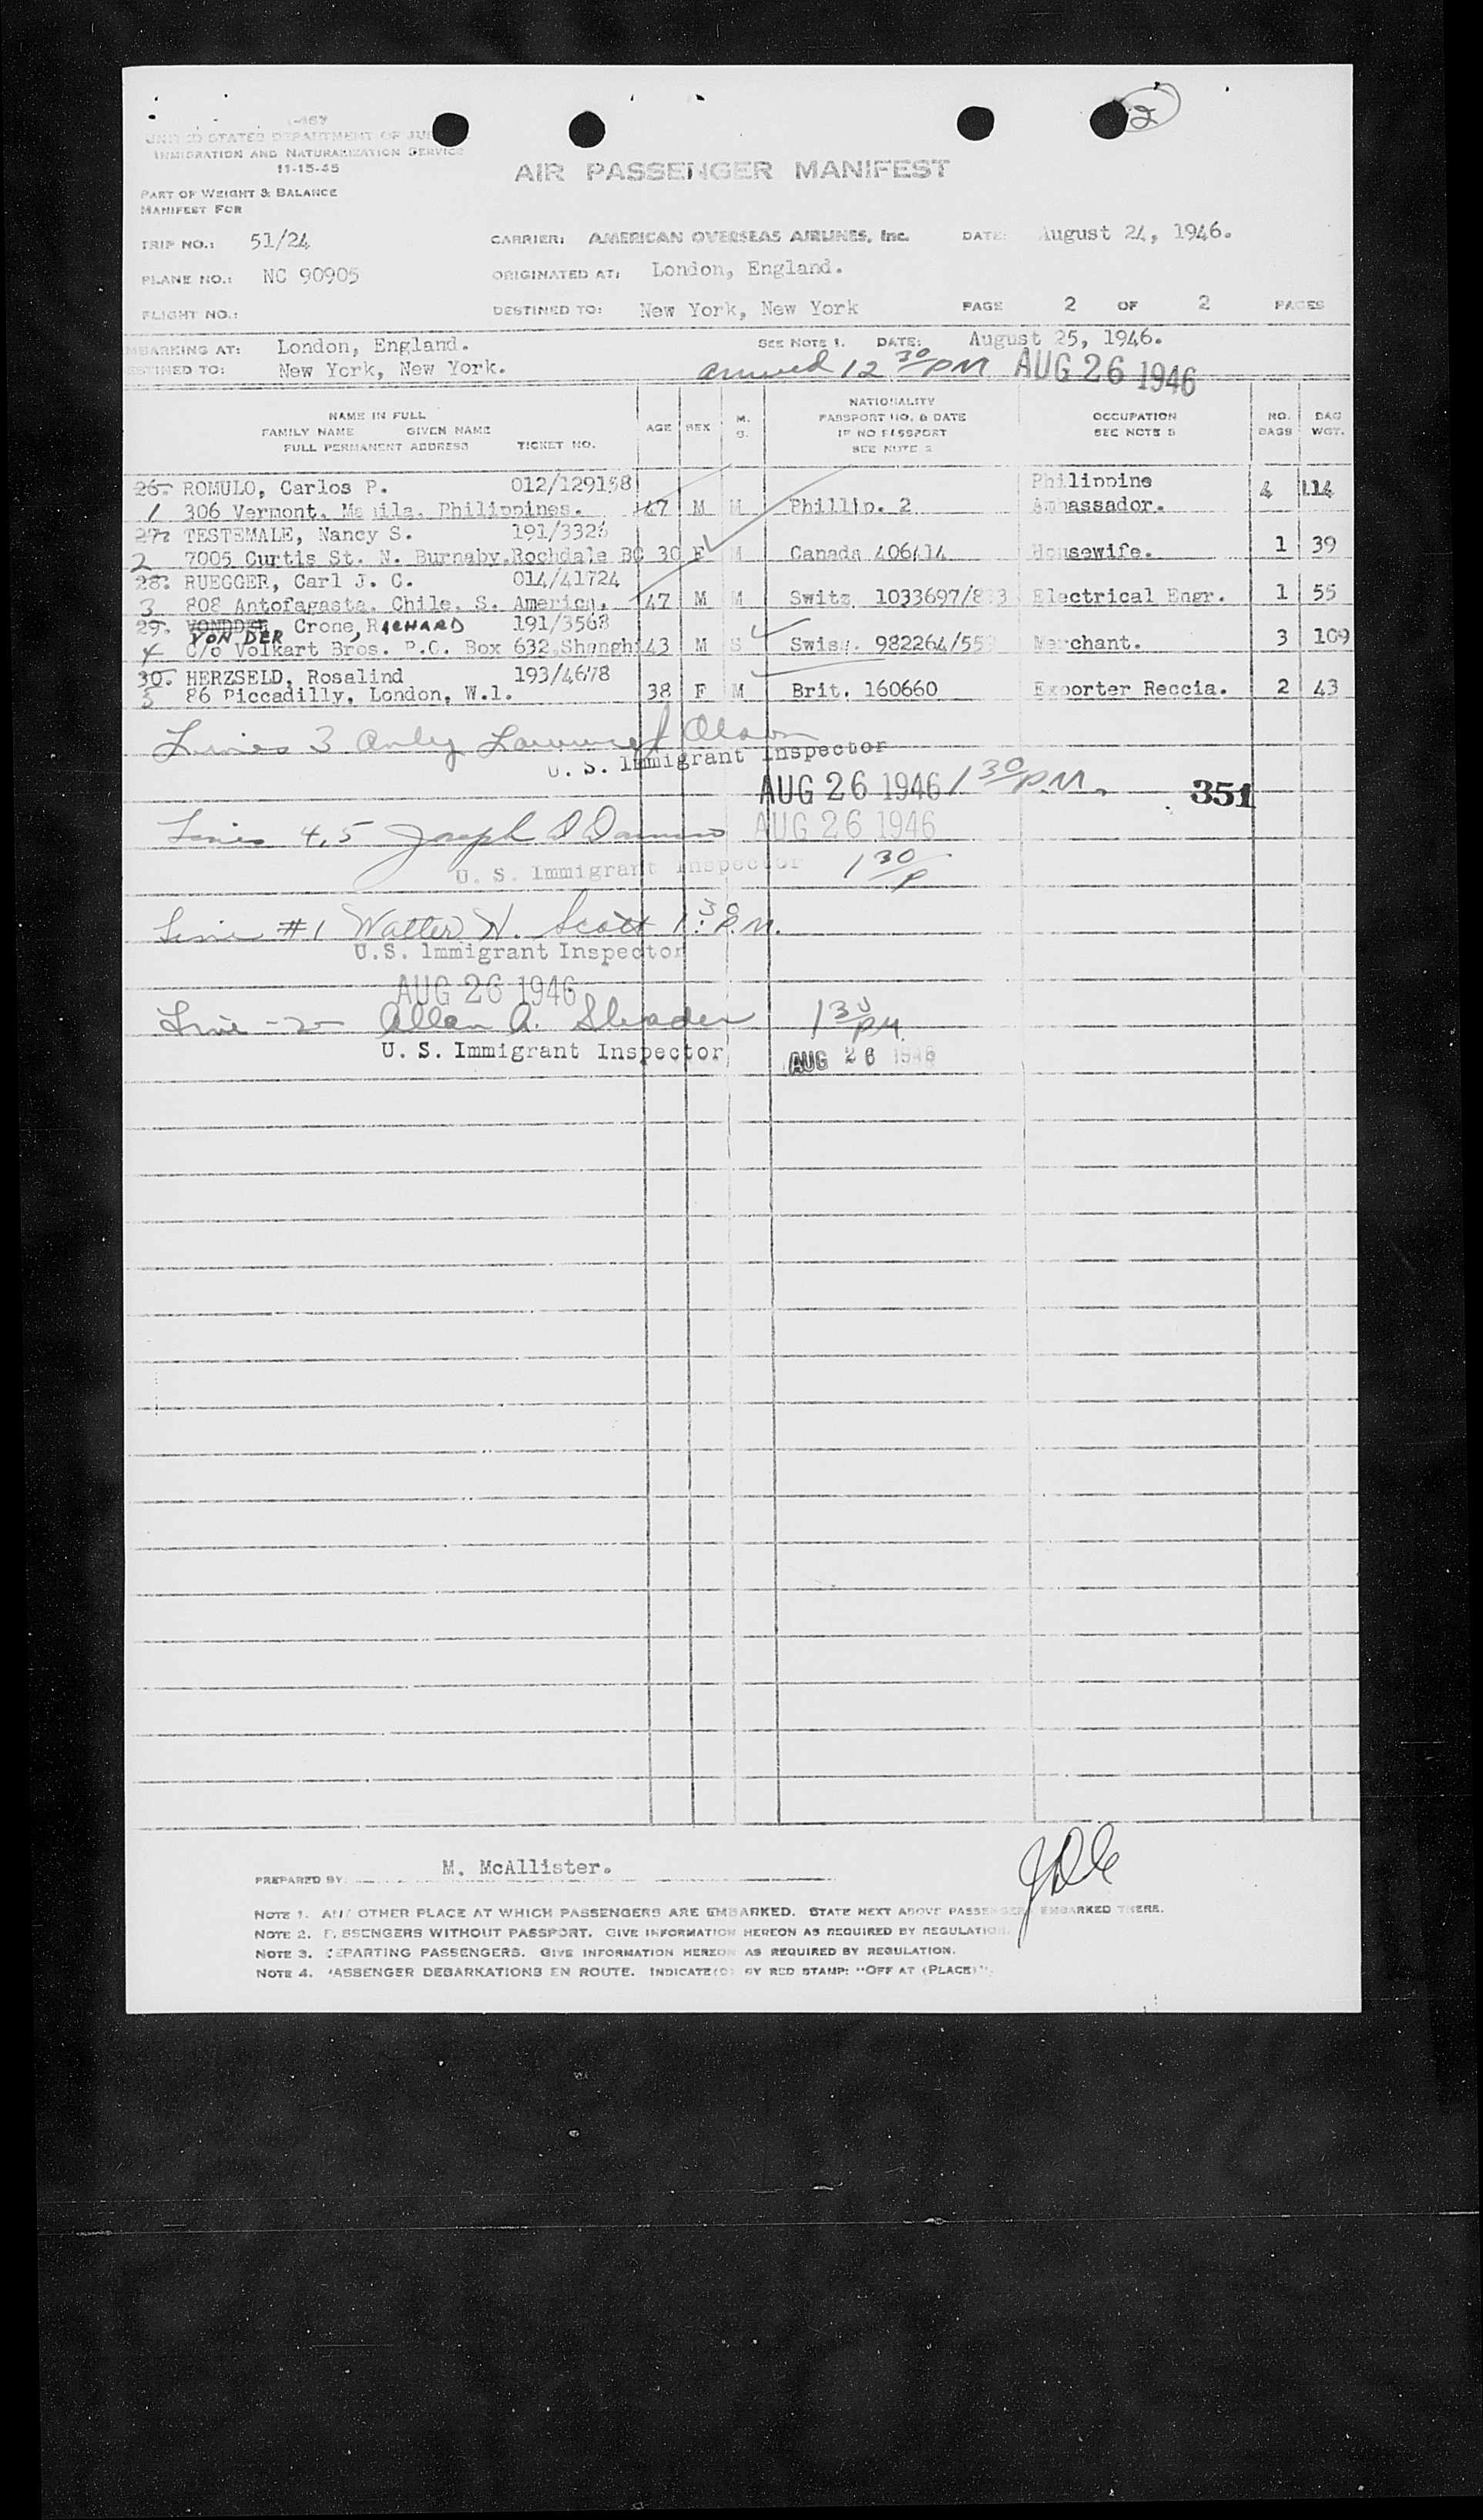 2
UNITED STATES DEPARTMENT OF
IMMIGRATION AND NATURALIZATION SERVICE
11-15-45
AIR PASSENGER MANIFEST
PART OF WEIGHT & BALANCE
MANIFEST FOR
TRIP NO.: 51/24 CARRIER: AMERICAN OVERSEAS AIRLINES, Inc. DATE: August 24, 1946.
PLANE NO.: NC 90905 ORIGINATED AT: London, England.
FLIGHT NO.: DESTINED TO: New York, New York PAGE 2 OF 2 PAGES
EMBARKING AT: London, England. SEE NOTE 1. DATE: August 25, 1946.
DESTINED TO: New York, New York. arrived 12 30 PM AUG 26 1946
NAME IN FULL
FAMILY NAME GIVEN NAME
FULL PERMANENT ADDRESS TICKET NO. AGE SEX M. S. NATIONALITY
PASSPORT NO. & DATE
IF NO PASSPORT
SEE NOTE 2 OCCUPATION
SEE NOTE 3 NO.
BAGS BAG
WGT.
26. ROMULO, Carlos P. 012/129158 Philippine
1 306 Vermont, Manila, Philippines. 47 M M Phillip. 2 Ambassador. 4 114
27. TESTEMALE, Nancy S. 191/3326
2 7005 Curtis St. N. Burnaby, Rochdale BC 30 F M Canada 406414 Housewife. 1 39
28. RUEGGER, Carl J. C. 014/41724
3 808 Antofagasta, Chile, S. America, 47 M M Switz 1033697/8 3 Electrical Engr. 1 55
29. VONDDER Crone, RICHARD 191/3568
VON DER
4 C/o Volkart Bros. P.O. Box 632, Shangh 43 M S Swiss. 982264/55 Merchant. 3 109
30. HERZSELD, Rosalind 193/4678
5 86 Piccadilly, London, W.1. 38 F M Brit. 160660 Exporter Reccia. 2 43
Lines 3 only Olson
U. S. Immigrant Inspector
AUG 26 1946 1 30 P.M. 351
Lines 4, 5 Joseph AUG 26 1946
U. S. Immigrant Inspector 1 30 P
Line #1 Walter H. Scott 1:30 P.M.
U.S. Immigrant Inspector
AUG 26 1946
Line -2- Allan A. 1 30 PM.
U. S. Immigrant Inspector AUG 26 1946
PREPARED BY M. McAllister.
NOTE 1. ANY OTHER PLACE AT WHICH PASSENGERS ARE EMBARKED. STATE NEXT ABOVE PASSENGERS EMBARKED THERE.
NOTE 2. PASSENGERS WITHOUT PASSPORT. GIVE INFORMATION HEREON AS REQUIRED BY REGULATION.
NOTE 3. DEPARTING PASSENGERS. GIVE INFORMATION HEREON AS REQUIRED BY REGULATION.
NOTE 4. PASSENGER DEBARKATIONS EN ROUTE. INDICATE(D) BY RED STAMP: "OFF AT (PLACE)".